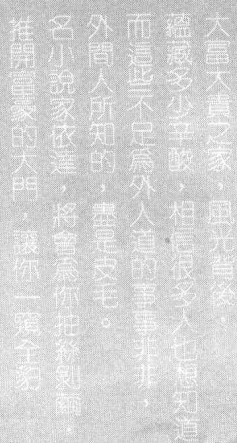 大富大貴之家，風光背後，
蘊藏多少辛酸，相信很多人也想知道
而這些不足為外人道的事事非非，
外間人所知的，盡是皮毛。
名小說家依達，將會為你抽絲剝繭，
推開富豪的大門，讓你一窺全豹